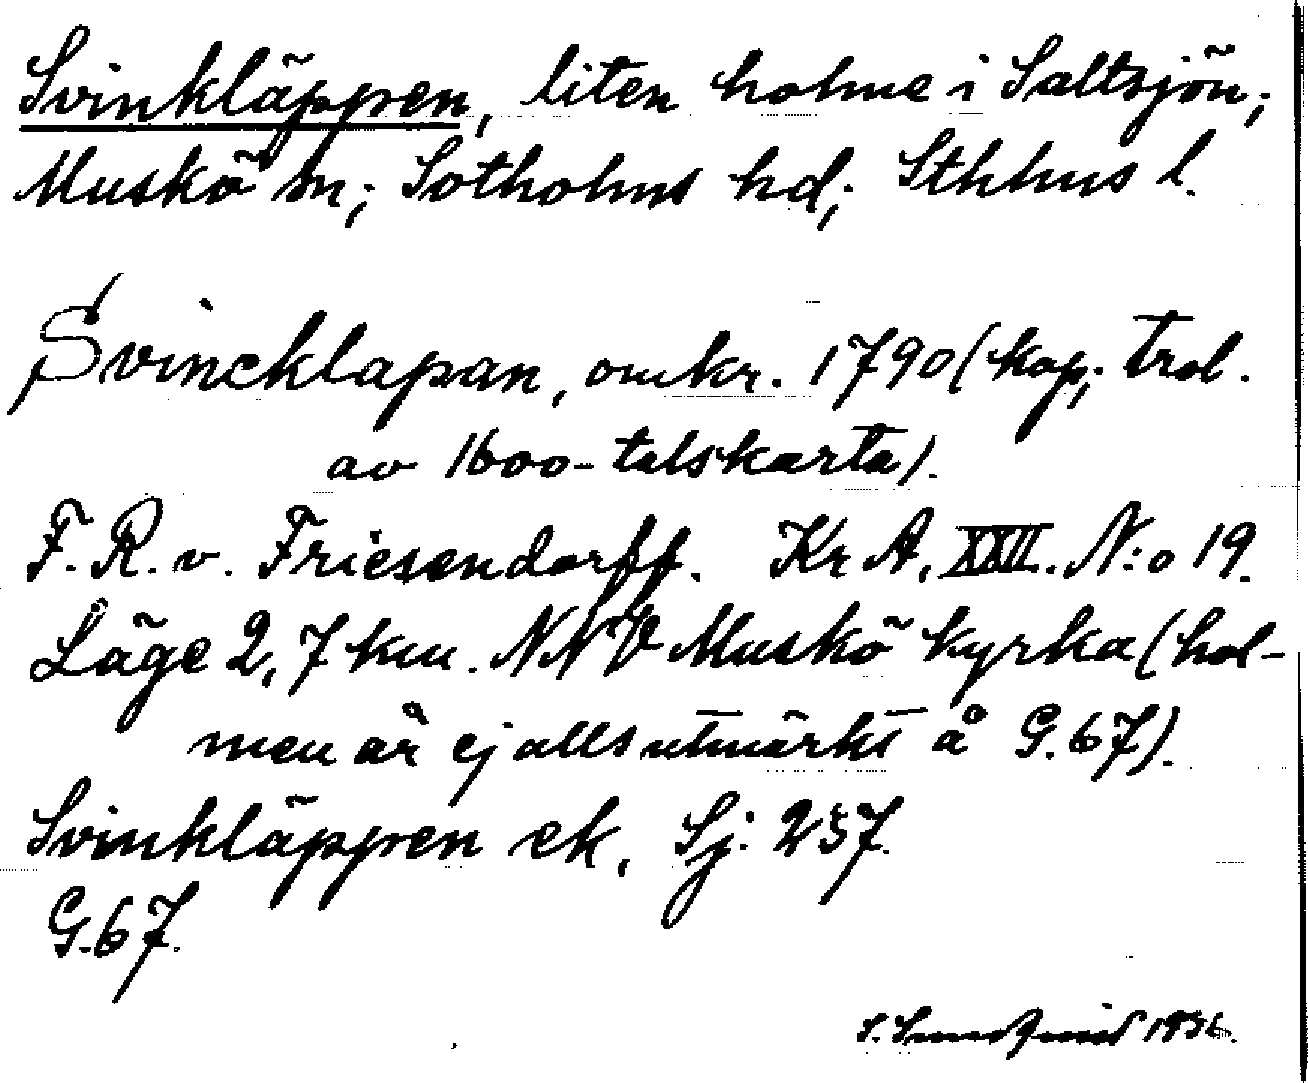 Svinkläppen, liten holme i Saltsjön;
Muskö sn; Sotholms hd; Sthlms l.
Svincklapan, omkr. 1790 (kop; trol.
av 1600-talskarta).
F. R. v. Friesendorff. Kr A. XXII. N:o 19.
Läge 2,7 km. NNV Muskö kyrka (hol-
men är ej alls utmärkt å G. 67).
Svinkläppen ek. Sj: 257.
G. 67.
S. 1936.